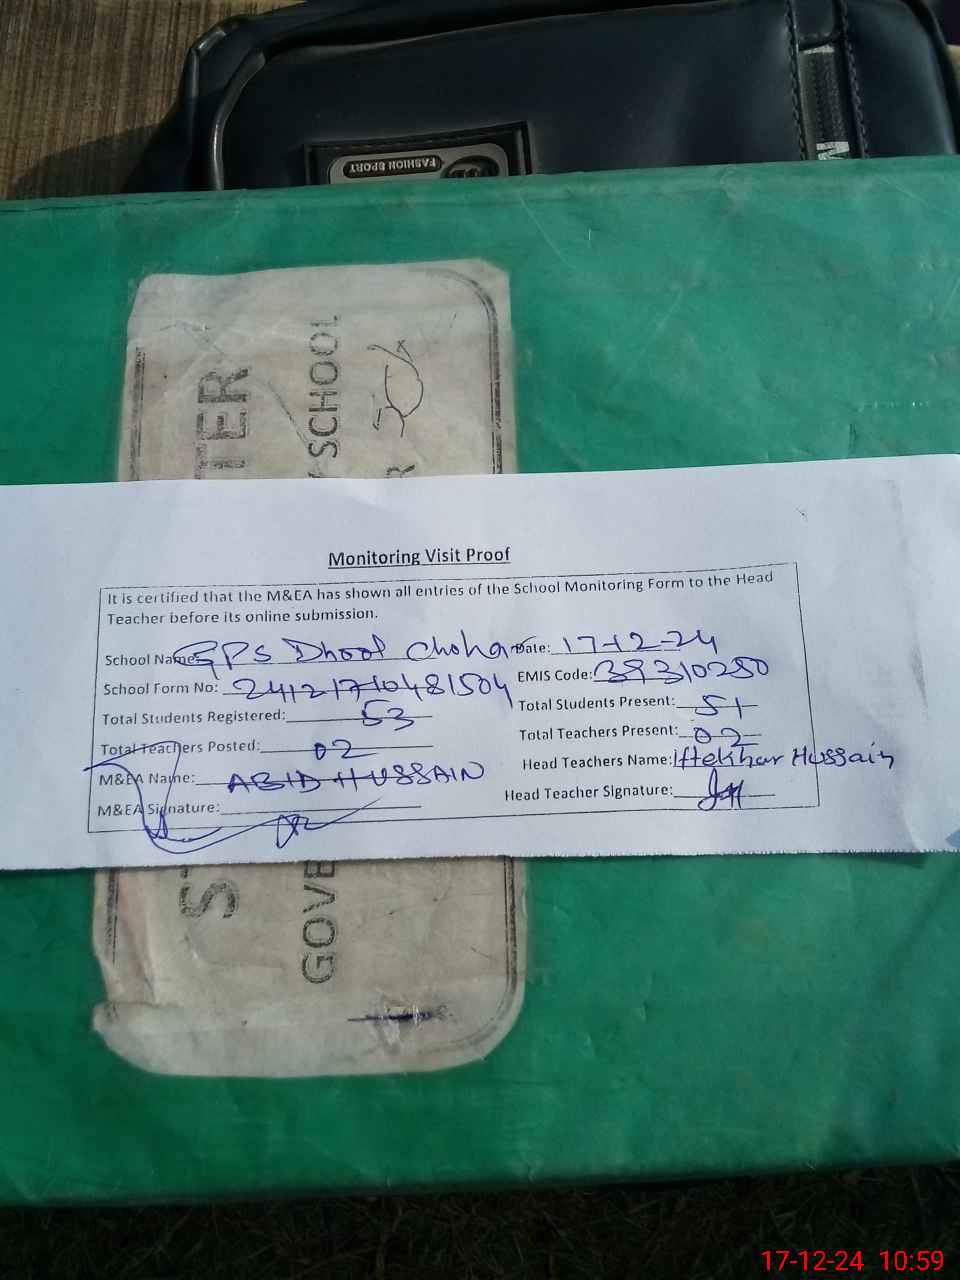 FASHION SPORT
TER
SCHOOL
R
Monitoring Visit Proof
It is certified that the M&EA has shown all entries of the School Monitoring Form to the Head
Teacher before its online submission.
School Name: GPS Dhool Chohan Date: 17-12-24
School Form No: 24121710481504 EMIS Code: 39310250
Total Students Registered: 53 Total Students Present: 51
Total Teachers Posted: 02 Total Teachers Present: 02
M&EA Name: ABID HUSSAIN Head Teachers Name: Iftekhar Hussain
M&EA Signature: Head Teacher Signature:
ST
GOVE
17-12-24 10:59